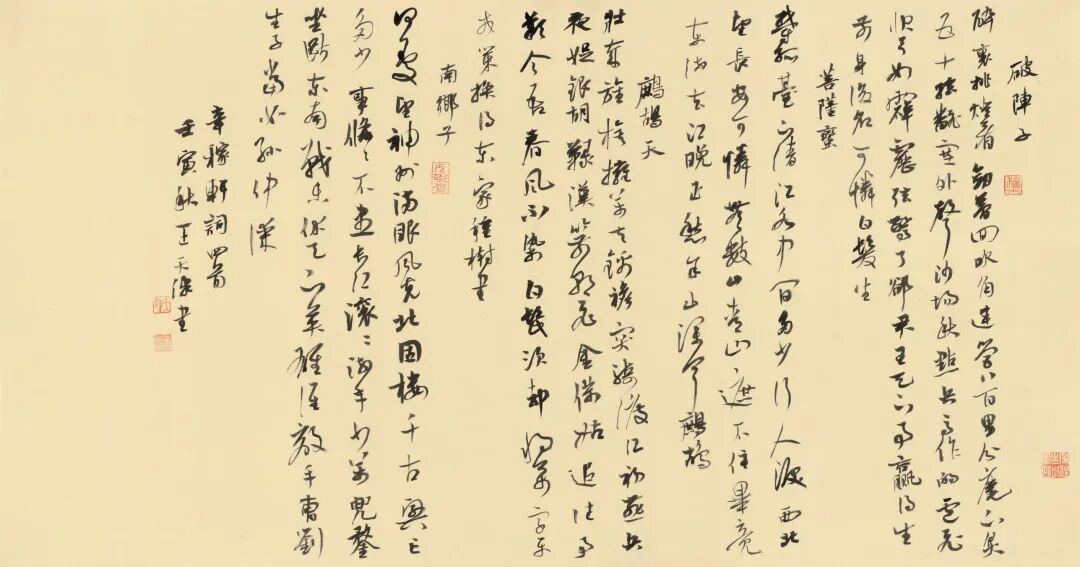 破陣子
醉裏挑燈看劍夢回吹角連營八百里分麾下炙
五十絃翻塞外聲沙場秋點兵馬作的盧飛
快弓如霹靂弦驚了卻君王天下事贏得生
前身後名可憐白髮生
菩薩蠻
鬱孤臺下清江水中間多少行人淚西北
望長安可憐無數山青山遮不住畢竟
東流去江晚正愁余山深聞鷓鴣
鷓鴣天
壯歲旌旗擁萬夫錦襜突騎渡江初燕兵
夜娖銀胡䩮漢箭朝飛金僕姑追往事
歎今吾春風不染白髭須卻將萬字平
戎策換得東家種樹書
南鄉子
何處望神州滿眼風光北固樓千古興亡
多少事悠〻不盡長江滾〻流年少萬兜鍪
坐斷東南戰未休天下英雄誰敵手曹劉
生子當如孫仲謀
辛稼軒詞四首
壬寅秋王天書